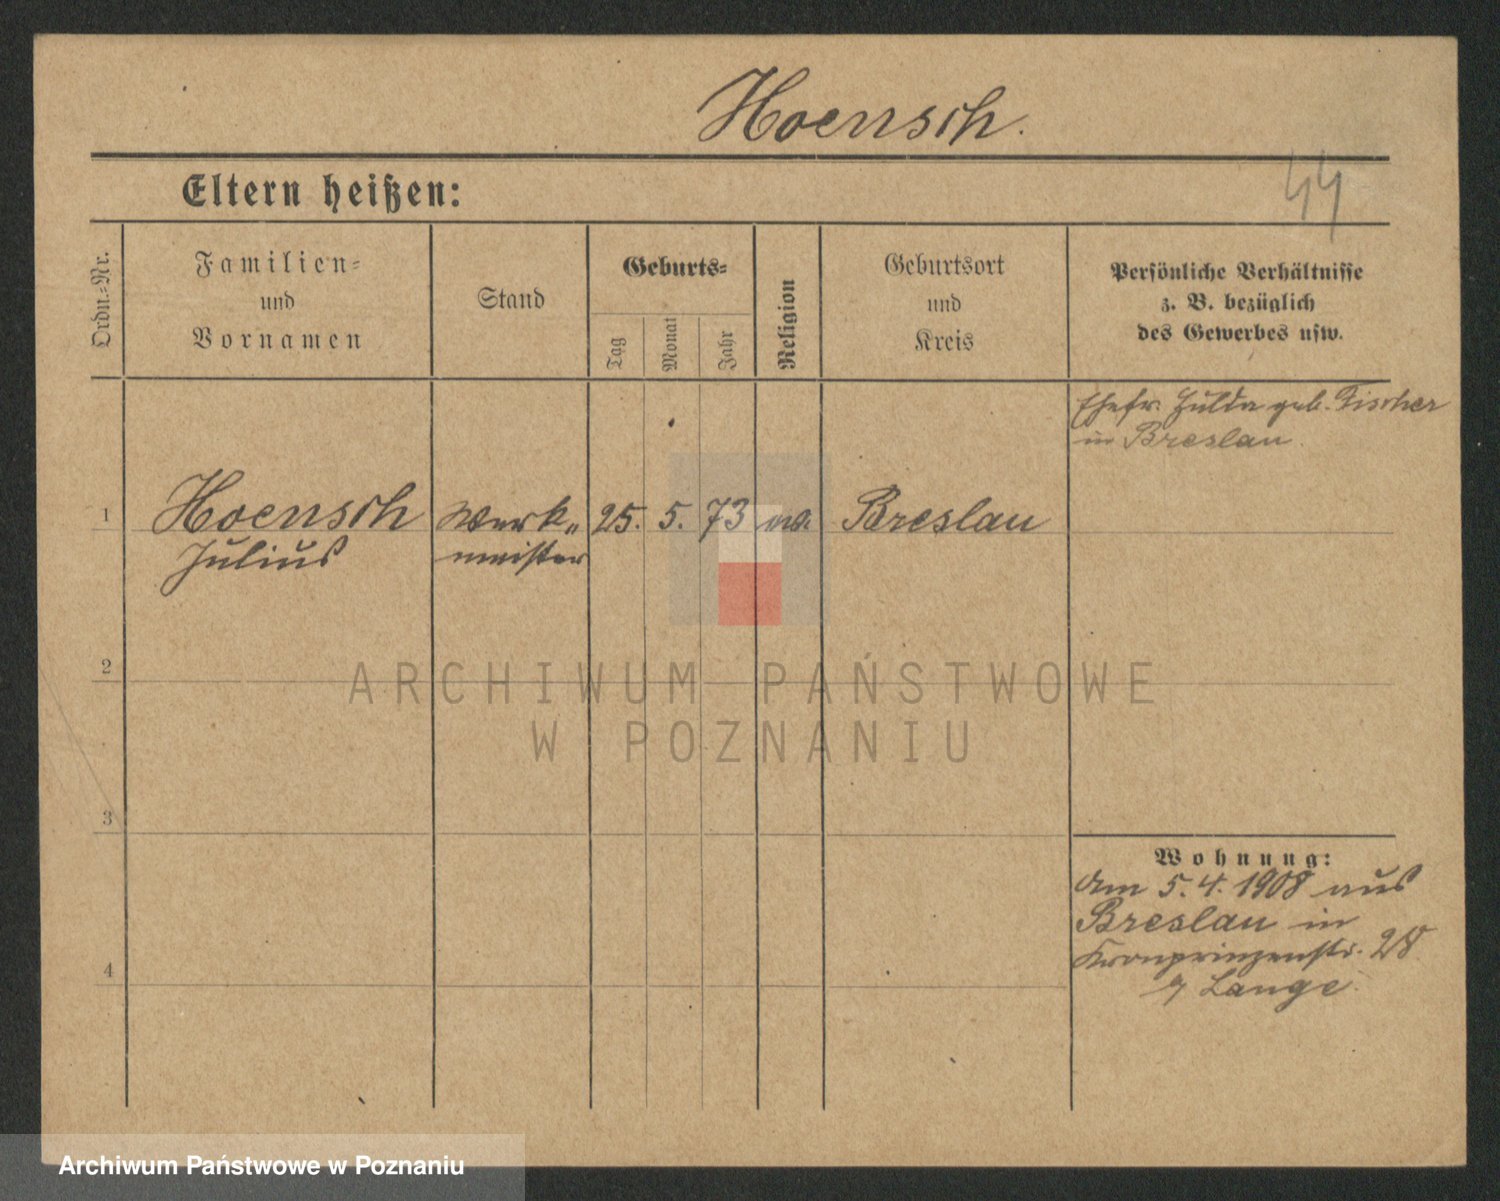 Hoensch.
Eltern heißen:
44
Ordn.-Nr.
Familien-
und
Vornamen
Stand
Geburts-
Tag
Monat
Jahr
Religion
Geburtsort
und
Kreis
Persönliche Verhältnisse
z. B. bezüglich
des Gewerbes usw.
Ehefr. Hulda geb. Fischer
in Breslau.
1
Hoensch
Julius
Werk-
meister
25.
5.
73
ev.
Breslau
ARCHIWUM PAŃSTWOWE
W POZNANIU
2
3
4
Wohnung:
Am 5.4.1908 aus
Breslau in
Kronprinzenstr. 28
Lange.
Archiwum Państwowe w Poznaniu